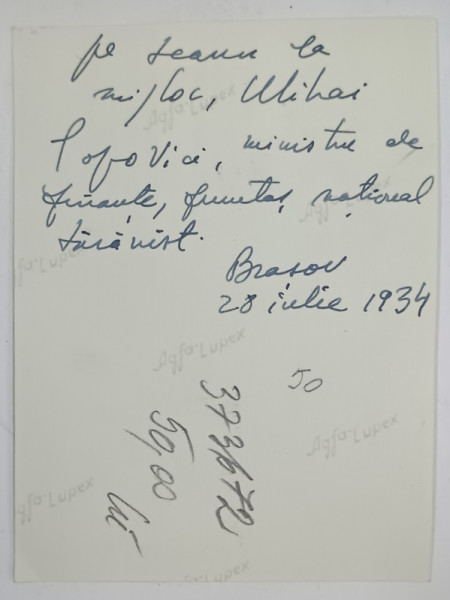 pe scaun la
mijloc, Mihai
Popovici, ministru de
finanțe, fruntaș național
țărănist.
Brasov
28 iulie 1934
50
373672
50,00
lei
Agfa-Lupex
Agfa-Lupex
Agfa-Lupex
Agfa-Lupex
Agfa-Lupex
Agfa-Lupex